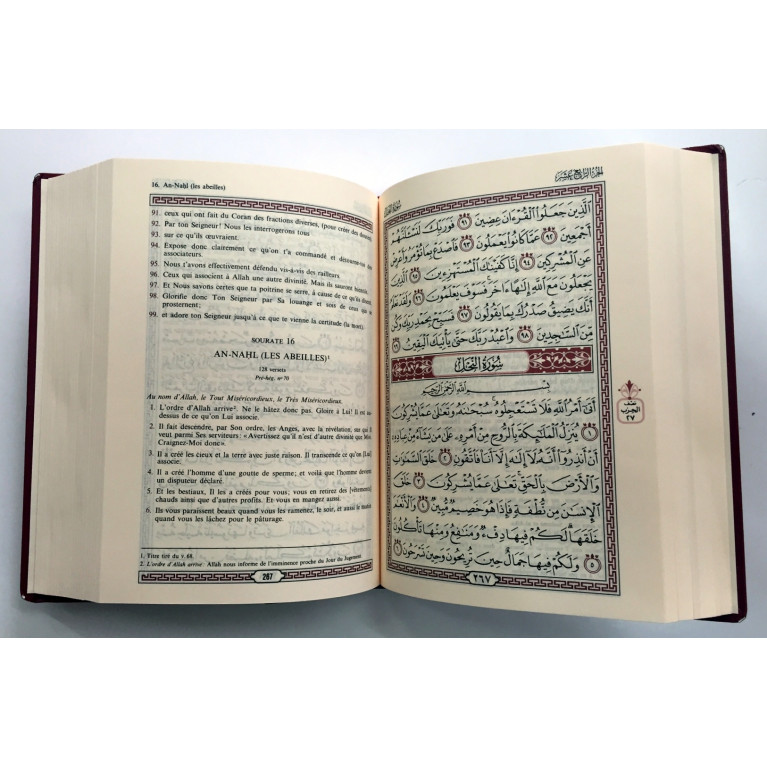 16. An-Naḥl (les abeilles)
91. ceux qui ont fait du Coran des fractions diverses, (pour créer des doutes).
92. Par ton Seigneur! Nous les interrogerons tous
93. sur ce qu'ils œuvraient.
94. Expose donc clairement ce qu'on t'a commandé et détourne-toi des
associateurs.
95. Nous t'avons effectivement défendu vis-à-vis des railleurs
96. Ceux qui associent à Allah une autre divinité. Mais ils sauront bientôt.
97. Et Nous savons certes que ta poitrine se serre, à cause de ce qu'ils disent.
98. Glorifie donc Ton Seigneur par Sa louange et sois de ceux qui se
prosternent;
99. et adore ton Seigneur jusqu'à ce que te vienne la certitude (la mort).
SOURATE 16
AN-NAḤL (LES ABEILLES)¹
128 versets
Pré-hég. n° 70
Au nom d'Allah, le Tout Miséricordieux, le Très Miséricordieux.
1. L'ordre d'Allah arrive². Ne le hâtez donc pas. Gloire à Lui! Il est au-
dessus de ce qu'on Lui associe.
2. Il fait descendre, par Son ordre, les Anges, avec la révélation, sur qui Il
veut parmi Ses serviteurs: «Avertissez qu'il n'est d'autre divinité que Moi.
Craignez-Moi donc».
3. Il a créé les cieux et la terre avec juste raison. Il transcende ce qu'on [Lui]
associe.
4. Il a créé l'homme d'une goutte de sperme; et voilà que l'homme devient
un disputeur déclaré.
5. Et les bestiaux, Il les a créés pour vous; vous en retirez des [vêtements]
chauds ainsi que d'autres profits. Et vous en mangez aussi.
6. Ils vous paraissent beaux quand vous les ramenez, le soir, et aussi le matin
quand vous les lâchez pour le pâturage.
1. Titre tiré du v. 68.
2. L'ordre d'Allah arrive: Allah nous informe de l'imminence proche du Jour du Jugement.
267
الجزء الرابع عشر
ٱلَّذِينَ جَعَلُوا۟ ٱلْقُرْءَانَ عِضِينَ ٩١ فَوَرَبِّكَ لَنَسْـَٔلَنَّهُمْ
أَجْمَعِينَ ٩٢ عَمَّا كَانُوا۟ يَعْمَلُونَ ٩٣ فَٱصْدَعْ بِمَا تُؤْمَرُ وَأَعْرِضْ
عَنِ ٱلْمُشْرِكِينَ ٩٤ إِنَّا كَفَيْنَـٰكَ ٱلْمُسْتَهْزِءِينَ ٩٥ ٱلَّذِينَ
يَجْعَلُونَ مَعَ ٱللَّهِ إِلَـٰهًا ءَاخَرَ فَسَوْفَ يَعْلَمُونَ ٩٦ وَلَقَدْ نَعْلَمُ
أَنَّكَ يَضِيقُ صَدْرُكَ بِمَا يَقُولُونَ ٩٧ فَسَبِّحْ بِحَمْدِ رَبِّكَ وَكُن
مِّنَ ٱلسَّـٰجِدِينَ ٩٨ وَٱعْبُدْ رَبَّكَ حَتَّىٰ يَأْتِيَكَ ٱلْيَقِينُ ٩٩
سُورَةُ النَّحْلِ
بِسْمِ ٱللَّهِ ٱلرَّحْمَـٰنِ ٱلرَّحِيمِ
أَتَىٰٓ أَمْرُ ٱللَّهِ فَلَا تَسْتَعْجِلُوهُ سُبْحَـٰنَهُۥ وَتَعَـٰلَىٰ عَمَّا يُشْرِكُونَ
١ يُنَزِّلُ ٱلْمَلَـٰٓئِكَةَ بِٱلرُّوحِ مِنْ أَمْرِهِۦ عَلَىٰ مَن يَشَآءُ مِنْ عِبَادِهِۦٓ
أَنْ أَنذِرُوٓا۟ أَنَّهُۥ لَآ إِلَـٰهَ إِلَّآ أَنَا۠ فَٱتَّقُونِ ٢ خَلَقَ ٱلسَّمَـٰوَٰتِ
وَٱلْأَرْضَ بِٱلْحَقِّ تَعَـٰلَىٰ عَمَّا يُشْرِكُونَ ٣ خَلَقَ
ٱلْإِنسَـٰنَ مِن نُّطْفَةٍ فَإِذَا هُوَ خَصِيمٌ مُّبِينٌ ٤ وَٱلْأَنْعَـٰمَ
خَلَقَهَا لَكُمْ فِيهَا دِفْءٌ وَمَنَـٰفِعُ وَمِنْهَا تَأْكُلُونَ
٥ وَلَكُمْ فِيهَا جَمَالٌ حِينَ تُرِيحُونَ وَحِينَ تَسْرَحُونَ ٦
نصف
الحزب
٢٧
٢٦٧